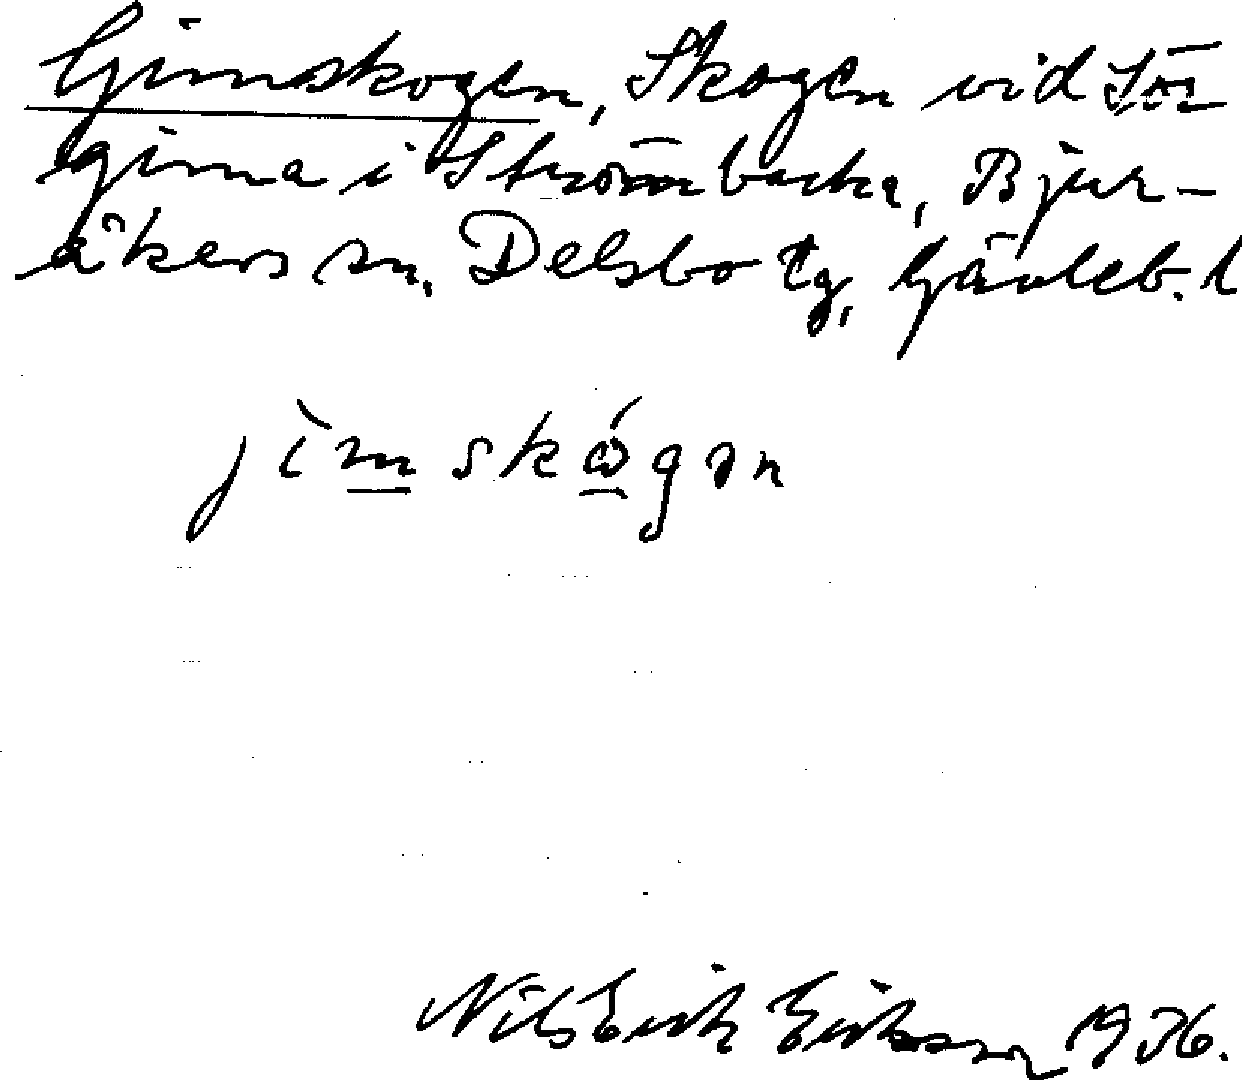 Gimskogen, Skogen vid Sör
gimma i Strömbacka, Bjur-
åkers sn, Delsbo tg, Gävleb. l
jìmskógən
Nils Erik Eriksson 1936.